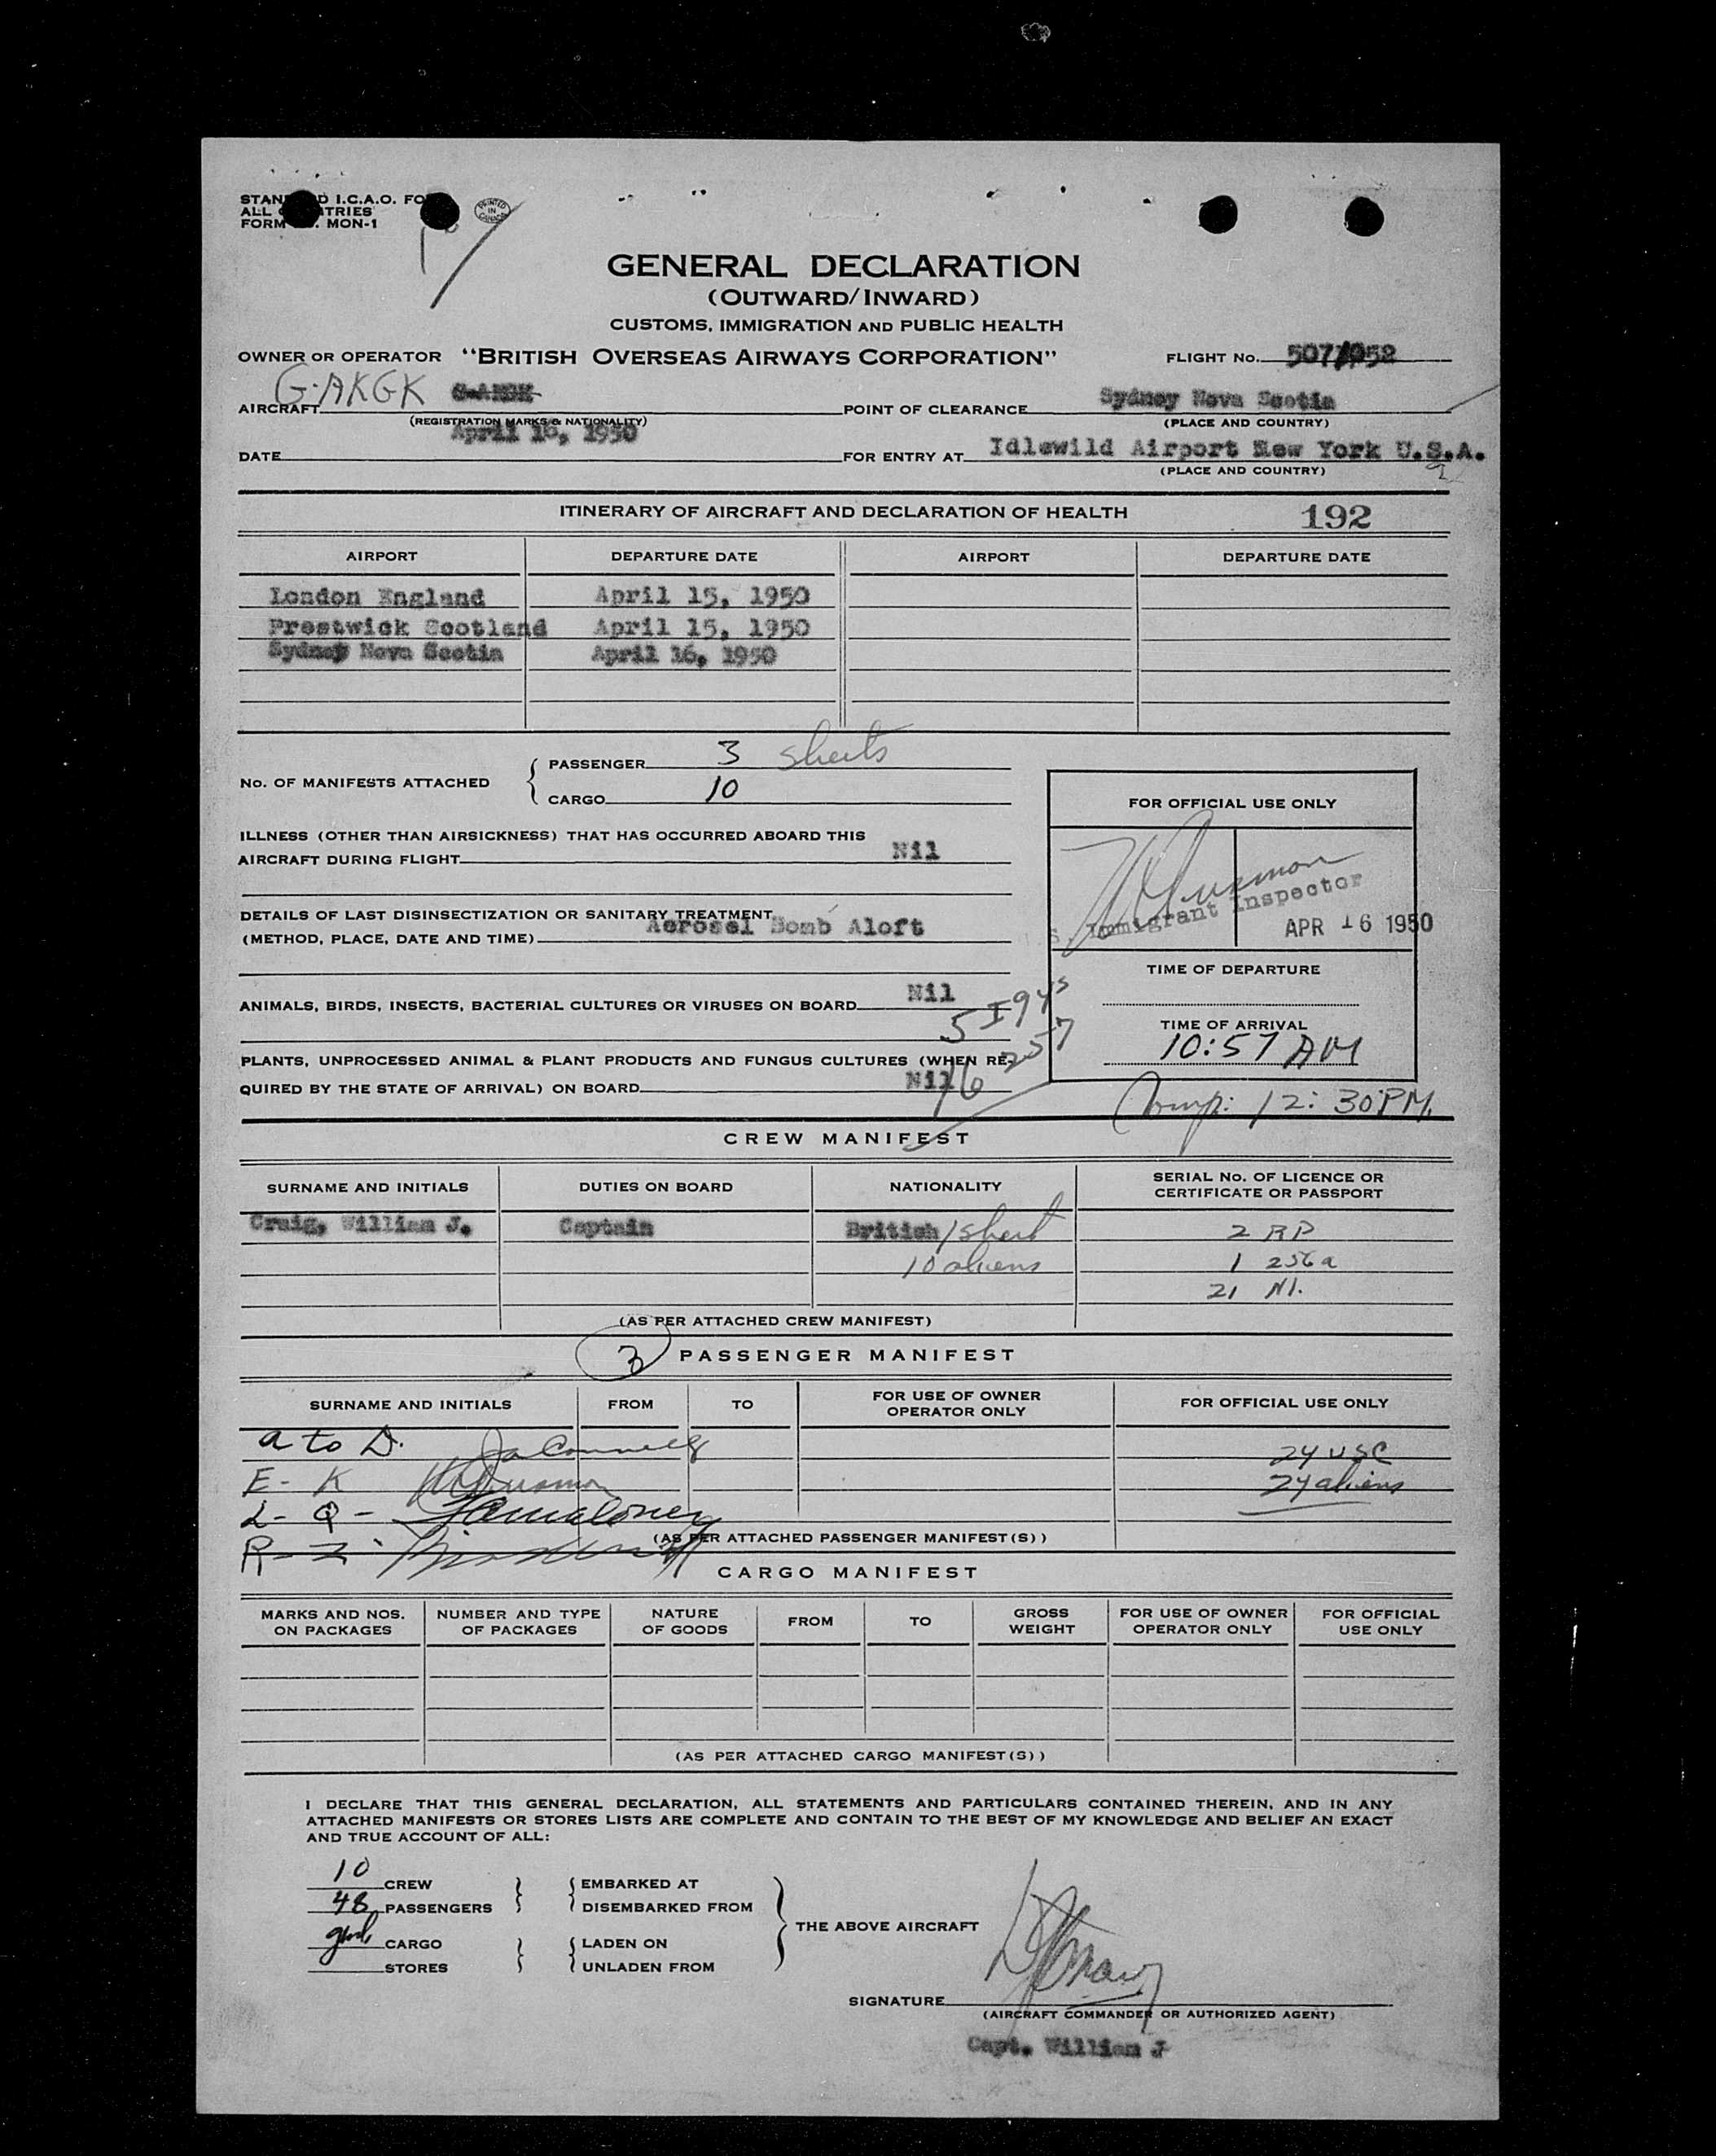 STAN D I.C.A.O. FO
ALL TRIES
FORM . MON-1
PRINTED IN CANADA
GENERAL DECLARATION
(OUTWARD/INWARD)
CUSTOMS, IMMIGRATION AND PUBLIC HEALTH
OWNER OR OPERATOR "BRITISH OVERSEAS AIRWAYS CORPORATION" FLIGHT No. 507/052
G-AKGK
AIRCRAFT POINT OF CLEARANCE Sydney Nova Scotia
(REGISTRATION MARKS & NATIONALITY) (PLACE AND COUNTRY)
DATE April 16, 1950 FOR ENTRY AT Idlewild Airport New York U.S.A.
(PLACE AND COUNTRY)
ITINERARY OF AIRCRAFT AND DECLARATION OF HEALTH 192
AIRPORT DEPARTURE DATE AIRPORT DEPARTURE DATE
London England April 15, 1950
Prestwick Scotland April 15, 1950
Sydney Nova Scotia April 16, 1950
No. OF MANIFESTS ATTACHED
PASSENGER 3 sheets
CARGO 10
ILLNESS (OTHER THAN AIRSICKNESS) THAT HAS OCCURRED ABOARD THIS
AIRCRAFT DURING FLIGHT Nil
DETAILS OF LAST DISINSECTIZATION OR SANITARY TREATMENT
(METHOD, PLACE, DATE AND TIME) Aerosel Bomb Aloft
ANIMALS, BIRDS, INSECTS, BACTERIAL CULTURES OR VIRUSES ON BOARD Nil
5 I 94s
257
PLANTS, UNPROCESSED ANIMAL & PLANT PRODUCTS AND FUNGUS CULTURES (WHEN RE-
QUIRED BY THE STATE OF ARRIVAL) ON BOARD Nil
16
FOR OFFICIAL USE ONLY
Immigrant Inspector
APR 16 1950
TIME OF DEPARTURE
TIME OF ARRIVAL
10:57 AM
Comp: 12:30 PM.
CREW MANIFEST
SURNAME AND INITIALS DUTIES ON BOARD NATIONALITY SERIAL No. OF LICENCE OR CERTIFICATE OR PASSPORT
Craig, William J. Captain British 1 sheet 2 RP
10 aliens 1 256a
21 N1.
(AS PER ATTACHED CREW MANIFEST)
3 PASSENGER MANIFEST
SURNAME AND INITIALS FROM TO FOR USE OF OWNER OPERATOR ONLY FOR OFFICIAL USE ONLY
a to D. 24 USC
E - K 24 aliens
L - Q -
R - Z
(AS PER ATTACHED PASSENGER MANIFEST(S))
CARGO MANIFEST
MARKS AND NOS. ON PACKAGES NUMBER AND TYPE OF PACKAGES NATURE OF GOODS FROM TO GROSS WEIGHT FOR USE OF OWNER OPERATOR ONLY FOR OFFICIAL USE ONLY
(AS PER ATTACHED CARGO MANIFEST(S))
I DECLARE THAT THIS GENERAL DECLARATION, ALL STATEMENTS AND PARTICULARS CONTAINED THEREIN, AND IN ANY
ATTACHED MANIFESTS OR STORES LISTS ARE COMPLETE AND CONTAIN TO THE BEST OF MY KNOWLEDGE AND BELIEF AN EXACT
AND TRUE ACCOUNT OF ALL:
10 CREW EMBARKED AT
48 PASSENGERS DISEMBARKED FROM
THE ABOVE AIRCRAFT
CARGO LADEN ON
STORES UNLADEN FROM
SIGNATURE
(AIRCRAFT COMMANDER OR AUTHORIZED AGENT)
Capt. William J